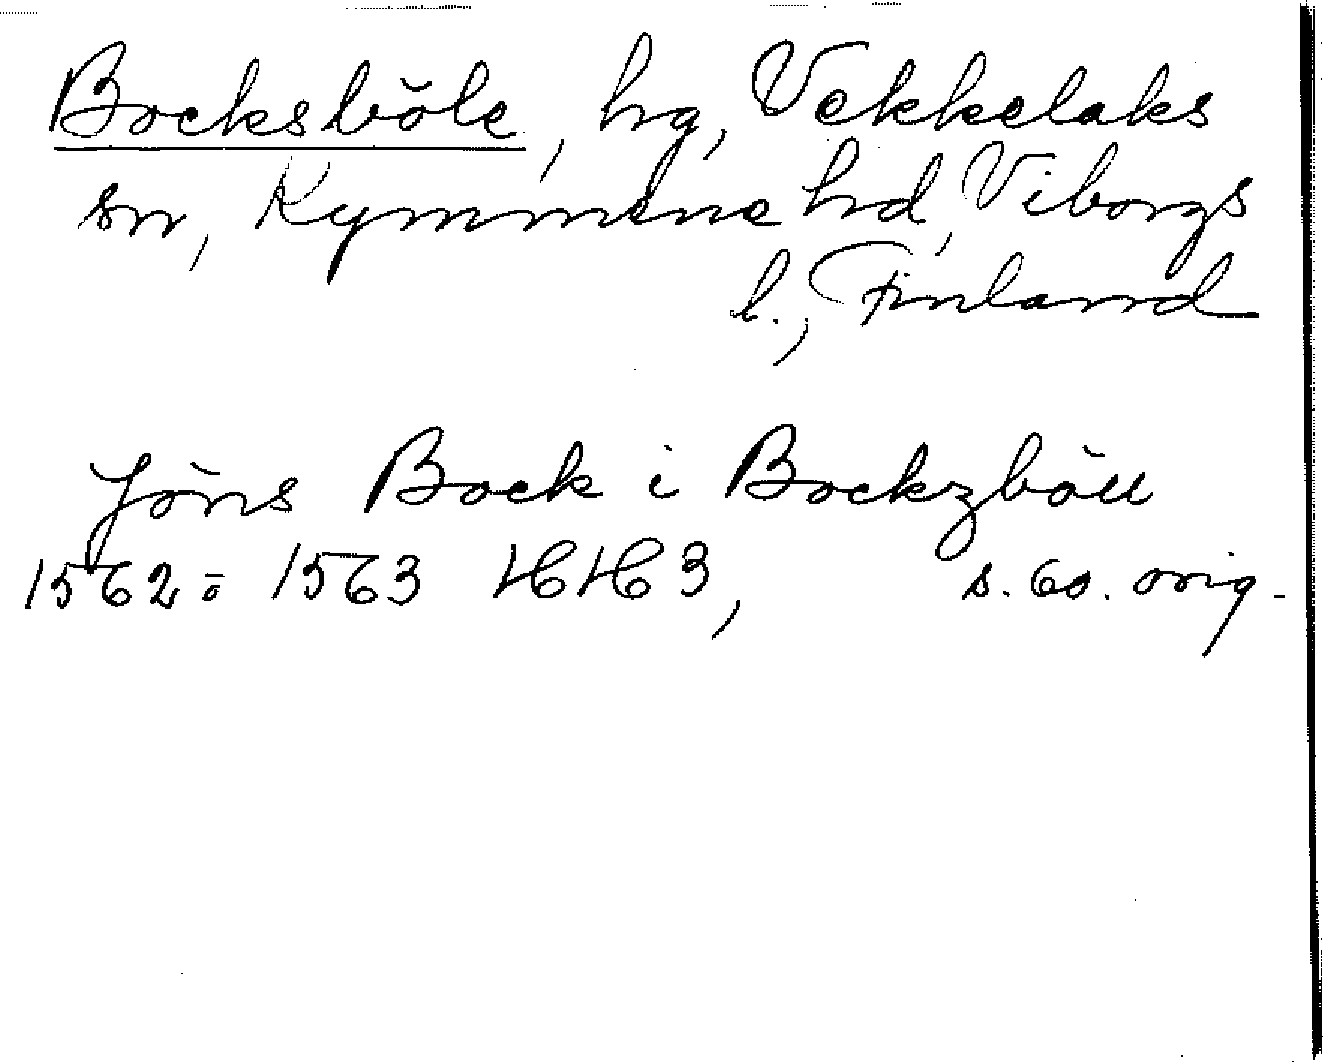 Bocksböle, hg, Vekkelaks
sn, Kymmene hd, Viborgs
l., Finland
Jöns Bock i Bockzböll
1562 ō 1563 HH 3, s. 60. orig.